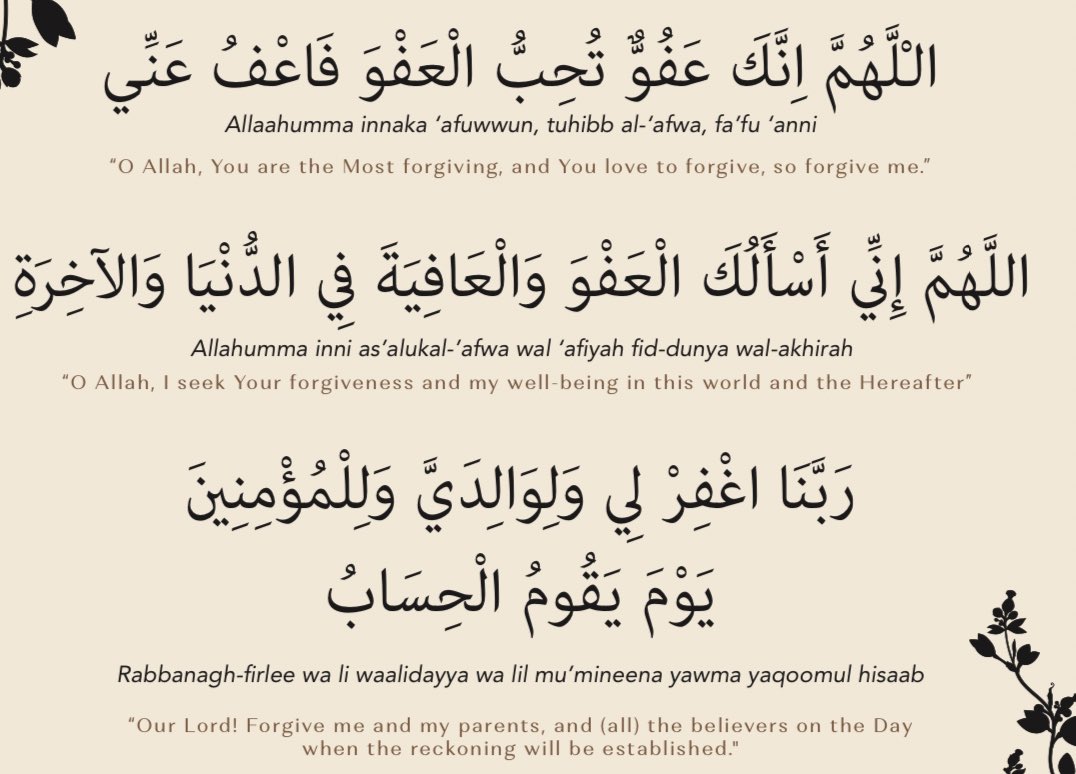 اللَّهُمَّ اِنَّكَ عَفُوٌّ تُحِبُّ الْعَفْوَ فَاعْفُ عَنِّي
Allaahumma innaka ‘afuwwun, tuhibb al-‘afwa, fa’fu ‘anni
“O Allah, You are the Most forgiving, and You love to forgive, so forgive me.”
اللَّهُمَّ إِنِّي أَسْأَلُكَ الْعَفْوَ وَالْعَافِيَةَ فِي الدُّنْيَا وَالآخِرَةِ
Allahumma inni as’alukal-’afwa wal ‘afiyah fid-dunya wal-akhirah
“O Allah, I seek Your forgiveness and my well-being in this world and the Hereafter”
رَبَّنَا اغْفِرْ لِي وَلِوَالِدَيَّ وَلِلْمُؤْمِنِينَ
يَوْمَ يَقُومُ الْحِسَابُ
Rabbanagh-firlee wa li waalidayya wa lil mu’mineena yawma yaqoomul hisaab
“Our Lord! Forgive me and my parents, and (all) the believers on the Day
when the reckoning will be established."